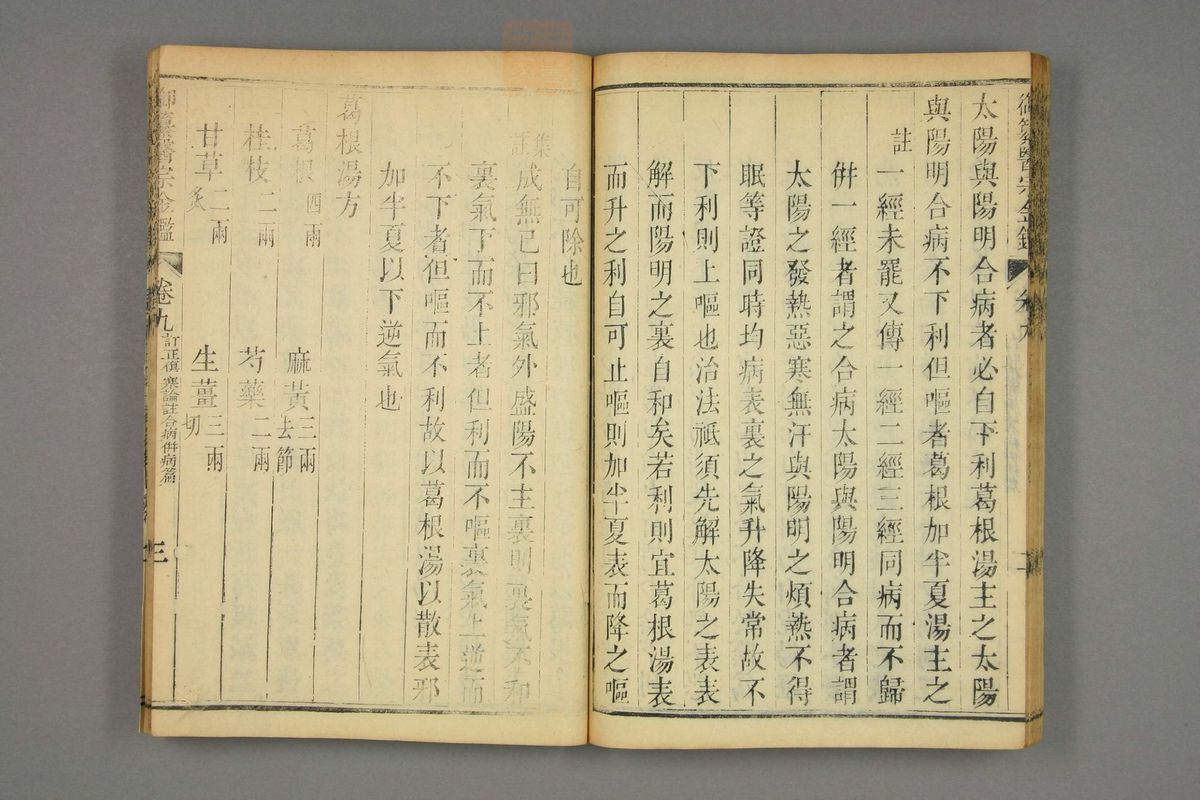 御纂醫宗金鑑
卷九
太陽與陽明合病者必自下利葛根湯主之太陽
與陽明合病不下利但嘔者葛根加半夏湯主之
註
一經未罷又傳一經二經三經同病而不歸
併一經者謂之合病太陽與陽明合病者謂
太陽之發熱惡寒無汗與陽明之煩熱不得
眠等證同時均病表裏之氣升降失常故不
下利則上嘔也治法祗須先解太陽之表表
解而陽明之裏自和矣若利則宜葛根湯表
而升之利自可止嘔則加半夏表而降之嘔
自可除也
集註
成無已曰邪氣外盛陽不主裏則裏氣不和
裏氣下而不上者但利而不嘔裏氣上逆而
不下者但嘔而不利故以葛根湯以散表邪
加半夏以下逆氣也
葛根湯方
葛根四兩 麻黃三兩去節
桂枝二兩 芍藥二兩
甘草二兩炙 生薑三兩切
御纂醫宗金鑑
卷九 訂正傷寒論註合病併病篇 三